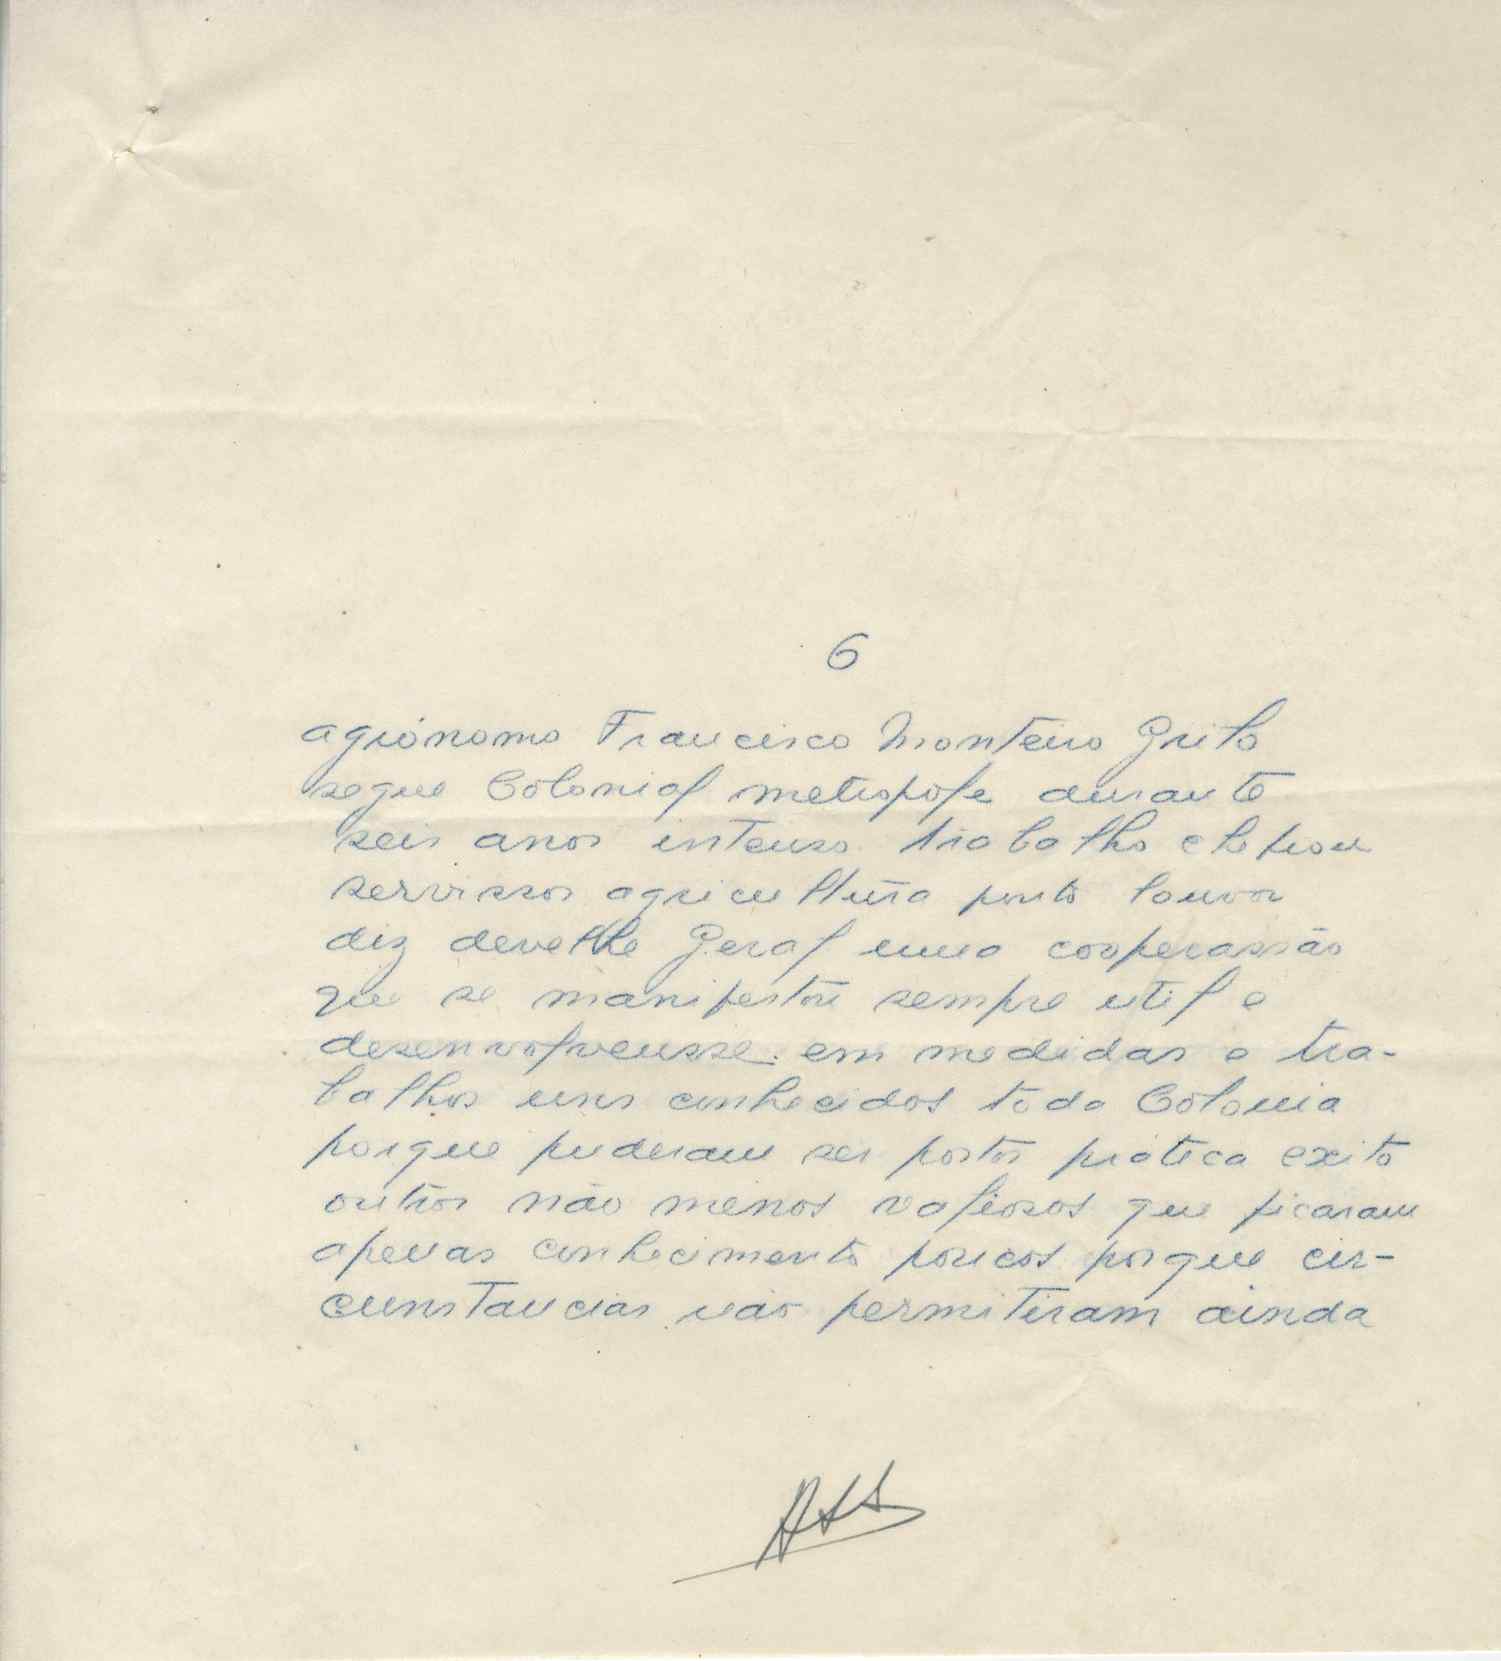 6
agrónomo Francisco Monteiro Grilo
segue Colonial metropole durante
seis anos intenso trabalho chefiou
servissos agricultura porto louvor
diz develhe Geral uma cooperassão
que se manifestou sempre util e
desenvolveusse em medidas e tra-
balhos uns conhecidos toda Colonia
porque puderam ser postos prática exito
outros não menos valiosos que ficaram
apenas conhecimento poucos porque cir-
cunstancias não permitiram ainda